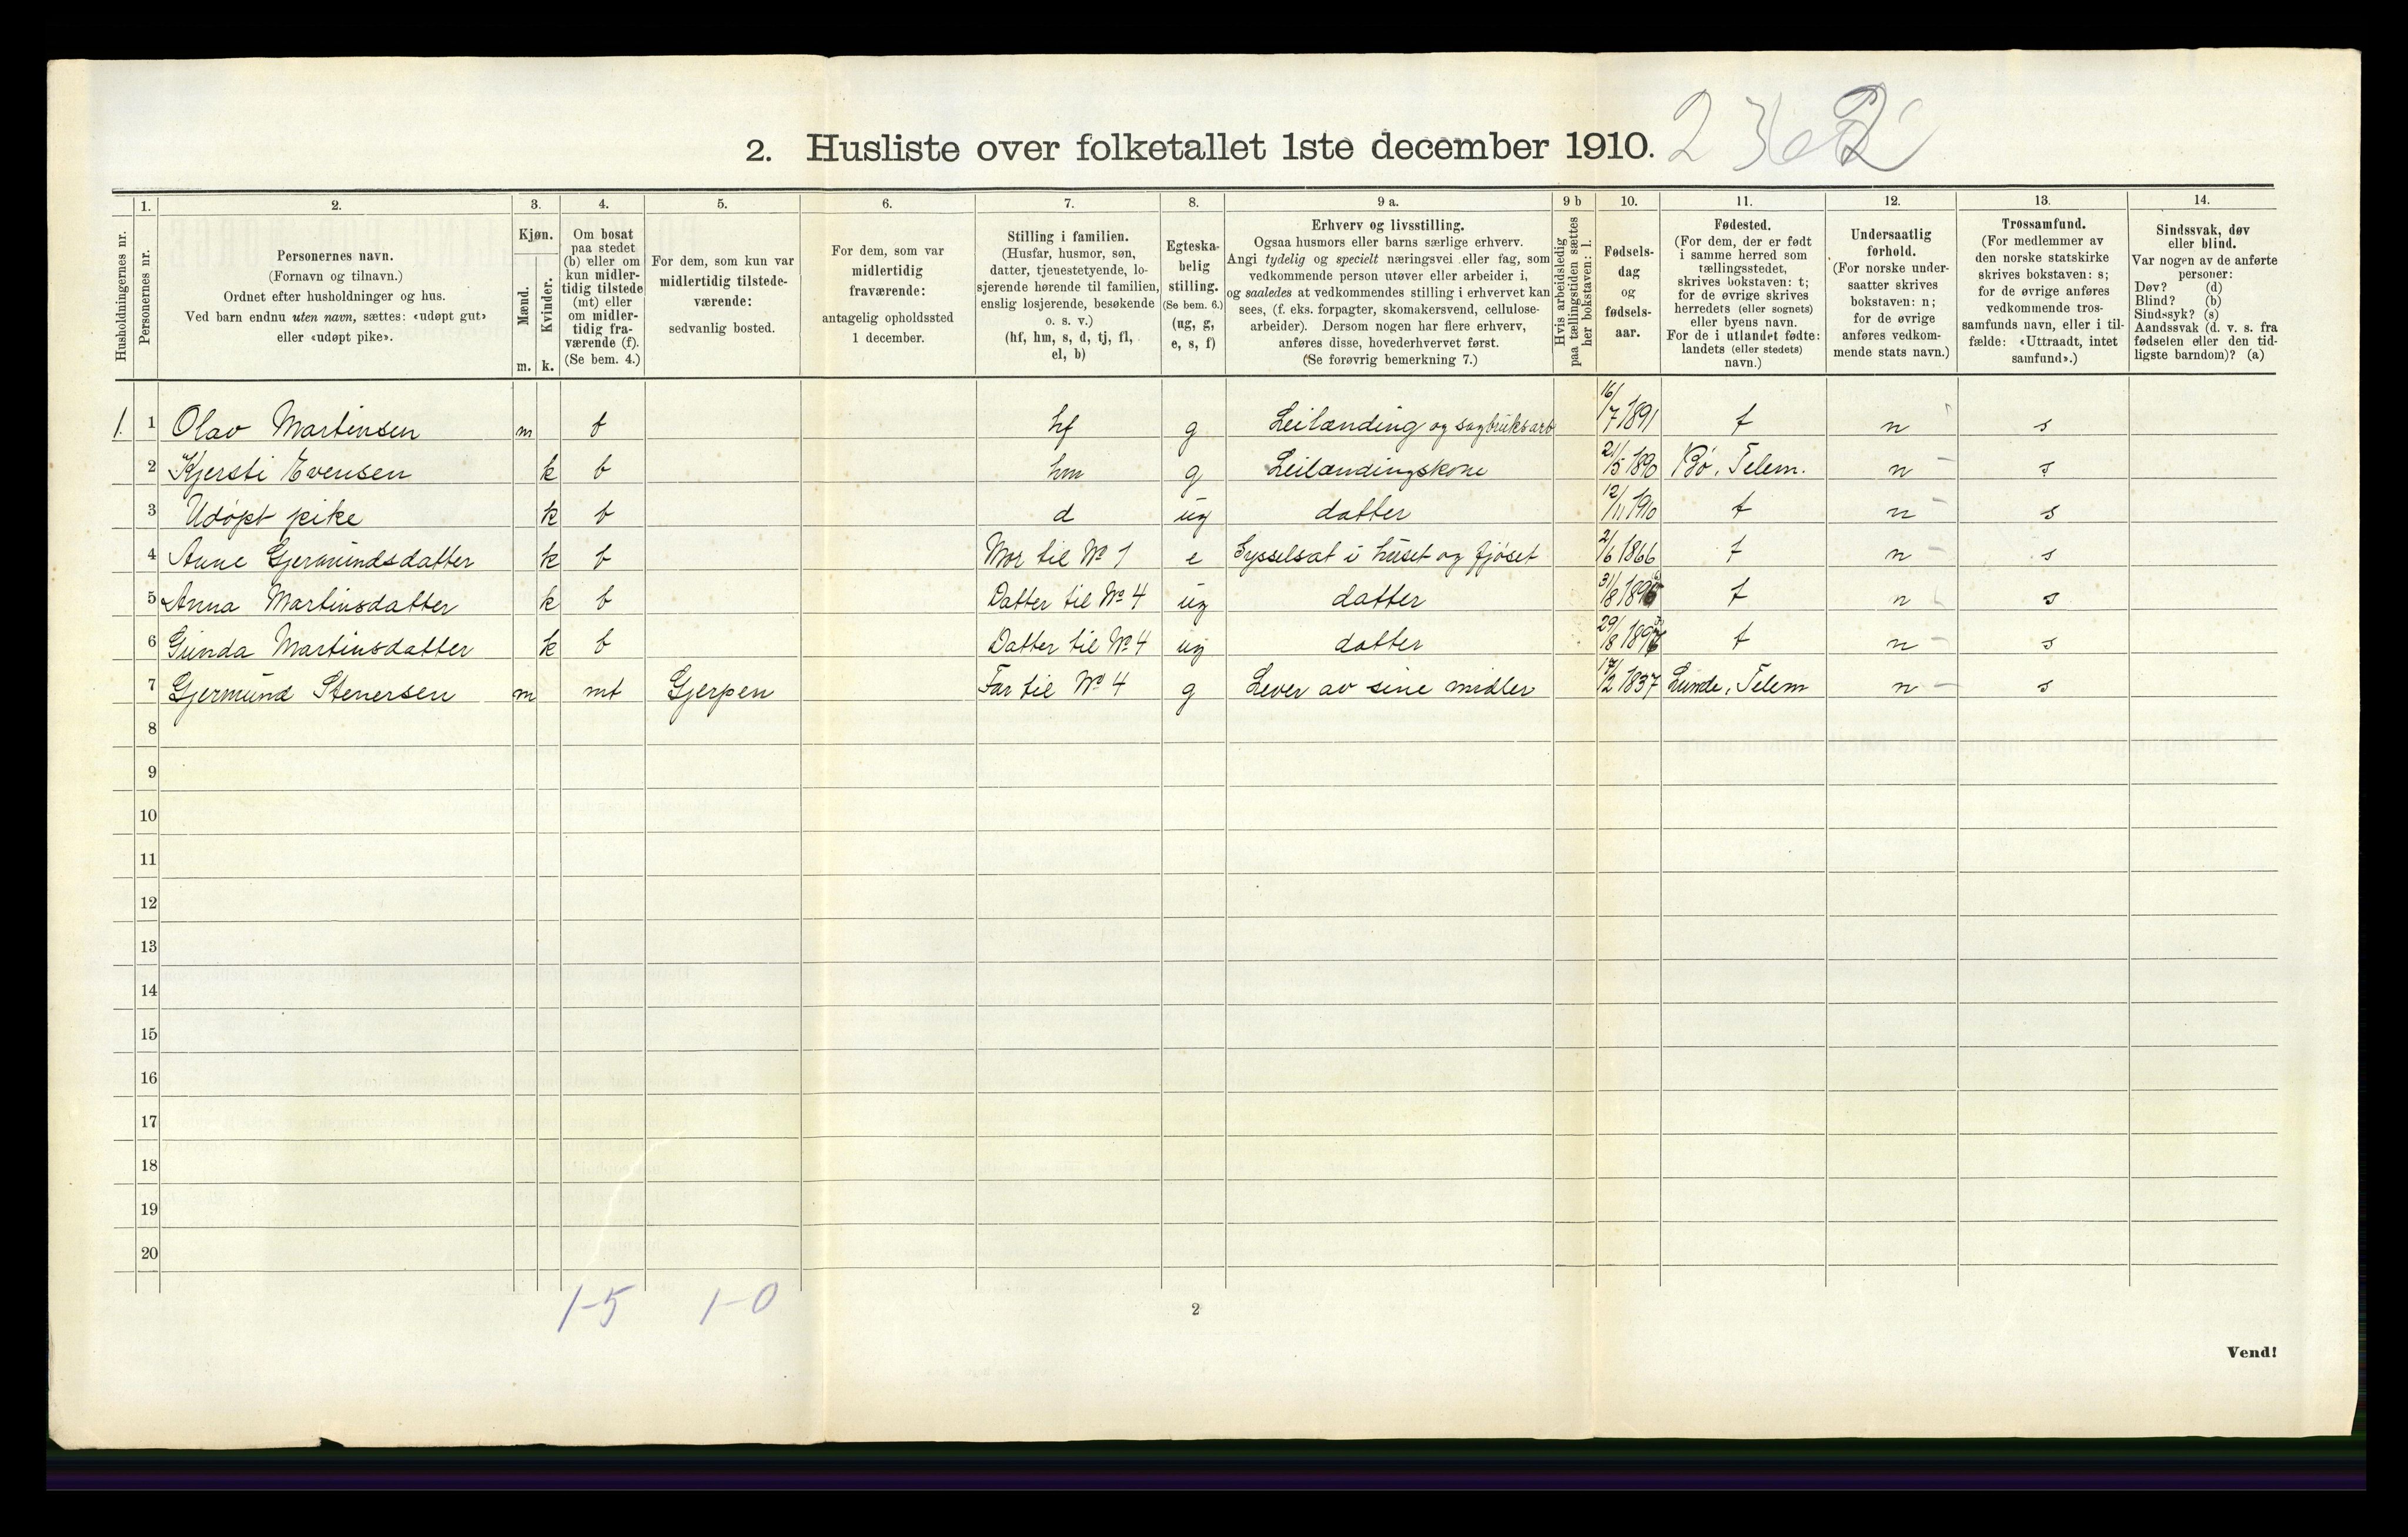 2. Husliste over folketallet 1ste december 1910.
Husholdningernes nr.
1.
Personernes nr.
2.
Personernes navn.
(Fornavn og tilnavn.)
Ordnet efter husholdninger og hus.
Ved barn endnu uten navn, sættes: «udøpt gut»
eller «udøpt pike».
3.
Kjøn.
Mænd.
Kvinder.
m. k.
4.
Om bosat
paa stedet
(b) eller om
kun midler-
tidig tilstede
(mt) eller
om midler-
tidig fra-
værende (f).
(Se bem. 4.)
5.
For dem, som kun var
midlertidig tilstede-
værende:
sedvanlig bosted.
6.
For dem, som var
midlertidig
fraværende:
antagelig opholdssted
1 december.
7.
Stilling i familien.
(Husfar, husmor, søn,
datter, tjenestetyende, lo-
sjerende hørende til familien,
enslig losjerende, besøkende
o. s. v.)
(hf, hm, s, d, tj, fl,
el, b)
8.
Egteska-
belig
stilling.
(Se bem. 6.)
(ug, g,
e, s, f)
9 a.
Erhverv og livsstilling.
Ogsaa husmors eller barns særlige erhverv.
Angi tydelig og specielt næringsvei eller fag, som
vedkommende person utøver eller arbeider i,
og saaledes at vedkommendes stilling i erhvervet kan
sees, (f. eks. forpagter, skomakersvend, cellulose-
arbeider). Dersom nogen har flere erhverv,
anføres disse, hovederhvervet først.
(Se forøvrig bemerkning 7.)
9 b
Hvis arbeidsledig
paa tællingstiden sættes
her bokstaven: l.
10.
Fødsels-
dag
og
fødsels-
aar.
11.
Fødested.
(For dem, der er født
i samme herred som
tællingsstedet,
skrives bokstaven: t;
for de øvrige skrives
herredets (eller sognets)
eller byens navn.
For de i utlandet fødte:
landets (eller stedets)
navn.)
12.
Undersaatlig
forhold.
(For norske under-
saatter skrives
bokstaven: n;
for de øvrige
anføres vedkom-
mende stats navn.)
13.
Trossamfund.
(For medlemmer av
den norske statskirke
skrives bokstaven: s;
for de øvrige anføres
vedkommende tros-
samfunds navn, eller i til-
fælde: «Uttraadt, intet
samfund».)
14.
Sindssvak, døv
eller blind.
Var nogen av de anførte
personer:
Døv? (d)
Blind? (b)
Sindssyk? (s)
Aandssvak (d. v. s. fra
fødselen eller den tid-
ligste barndom)? (a)
1. 1 Olav Martinsen m b hf g Leilænding og sagbruksarb 16/7 1891 t n s
2 Kjersti Evensen k b hm g Leilændingskone 21/5 1890 Bø, Telem. n s
3 Udøpt pike k b d ug datter 12/11 1910 t n s
4 Anne Gjermundsdatter k b Mor til No 1 e Sysselsat i huset og fjøset 2/6 1866 t n s
5 Anna Martinsdatter k b Datter til No 4 ug datter 31/8 t n s
6 Gunda Martinsdatter k b Datter til No 4 ug datter 29/8 t n s
7 Gjermund Stenersen m mt Gjerpen Far til No 4 g Lever av sine midler 17/2 1837 Lunde, Telem n s
8
9
10
11
12
13
14
15
16
17
18
19
20
1-5 1-0
2
Vend!